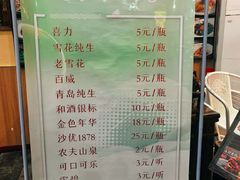 喜力 5元/瓶
雪花纯生 5元/瓶
老雪花 5元/瓶
百威 5元/瓶
青岛纯生 5元/瓶
和酒银标 10元/瓶
金色年华 18元/瓶
沙优1878 25元/瓶
农夫山泉 2元/瓶
可口可乐 3元/听
雪碧 3元/听